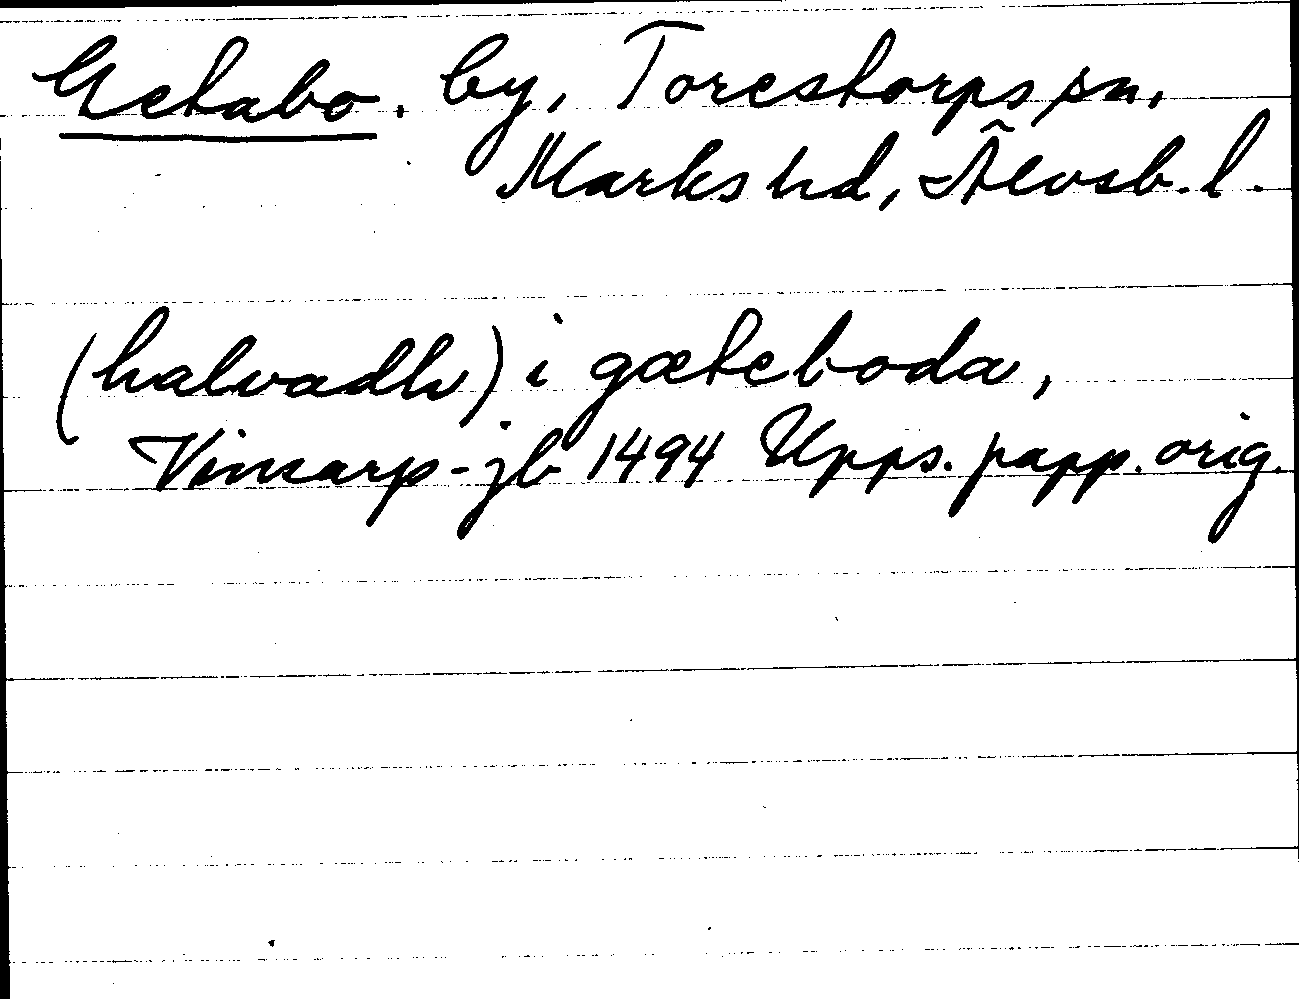 Getabo. by, Torestorps sn,
Marks hd, Älvsb. l.
(halvadh) i gæteboda,
Vinsarp-jb 1494 Upps. papp. orig.